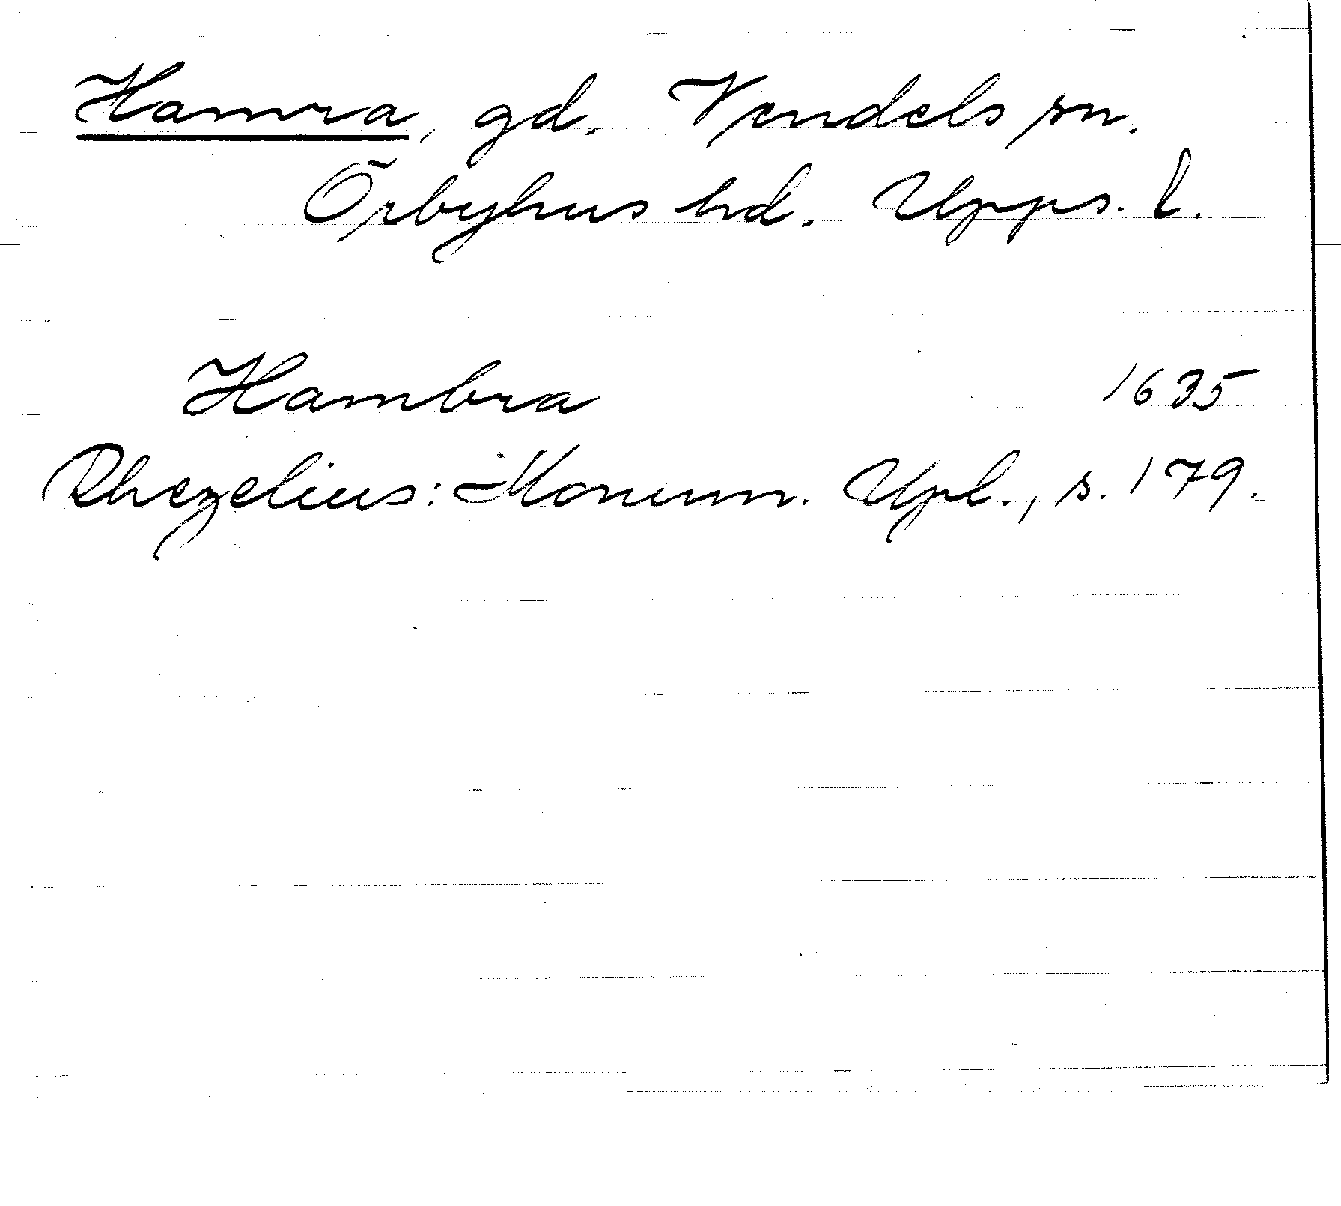 Hamra, gd. Vendels sn.
Örbyhus hd. Upps. l.
Hambra 1635
Rhezelius: Monum. Upl., s. 179.